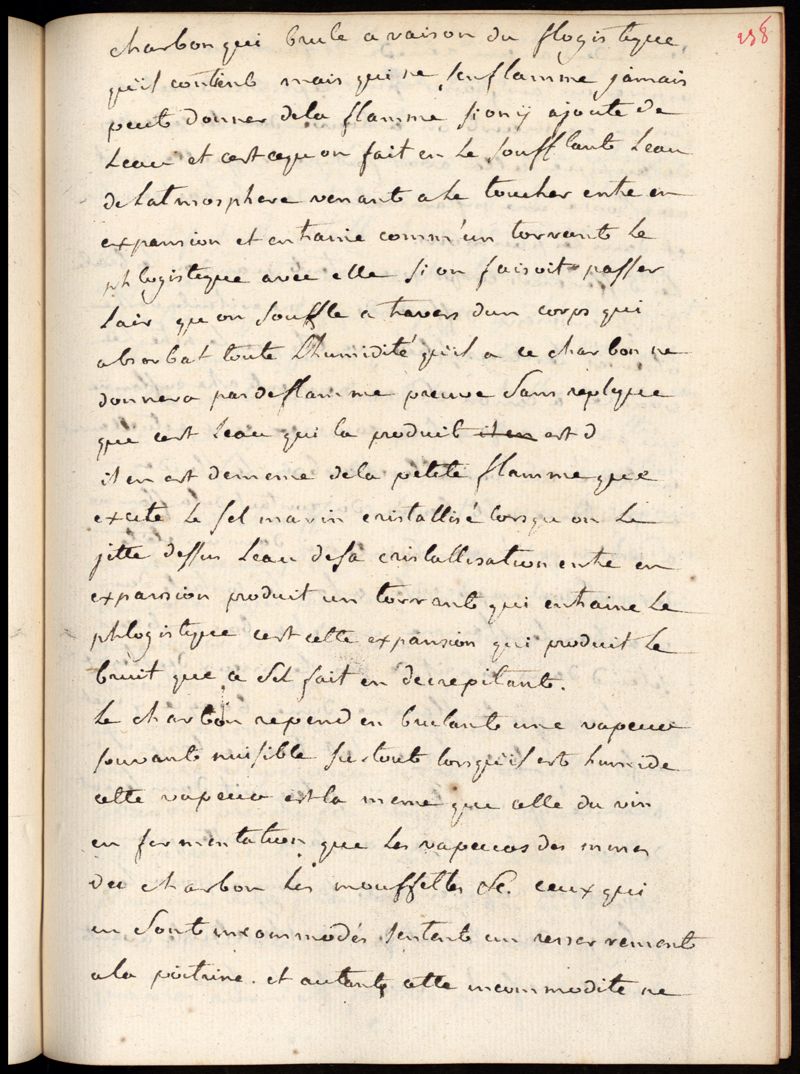 238
charbon qui brule a raison du flogistique
quil contient mais qui ne senflamme jamais
peut donner dela flamme si on ÿ ajoute de
leau et cest cequon fait en le soufflant leau
de latmosphere venant a le toucher entre en
expansion et entraine comm'un torrant le
phlogistique avec elle si on faisoit passer
lair quon souffle a travers dun corps qui
absorbat toute Lhumidité quil a ce charbon ne
donnera pas deflamme preuve sans replique
que cest leau qui la produit il en est d
il en est dememe dela petite flamme que
excite le sel marin cristallisé lorsquon le
jitte dessus leau desa cristallisation entre en
expansion produit un torrant qui entraine le
phlogistique cest cette expansion qui produit le
bruit que ce sel fait en decrepitant.
Le charbon repend en brulant une vapeur
souvant nuisible surtout lorsquil est humide
cette vapeur est la meme que celle du vin
en fermentation que les vapeurs des mines
de charbon les mouffettes &c. ceux qui
en sont incommodés sentent un resserrement
ala poitrine. et autant cette incommodite ne